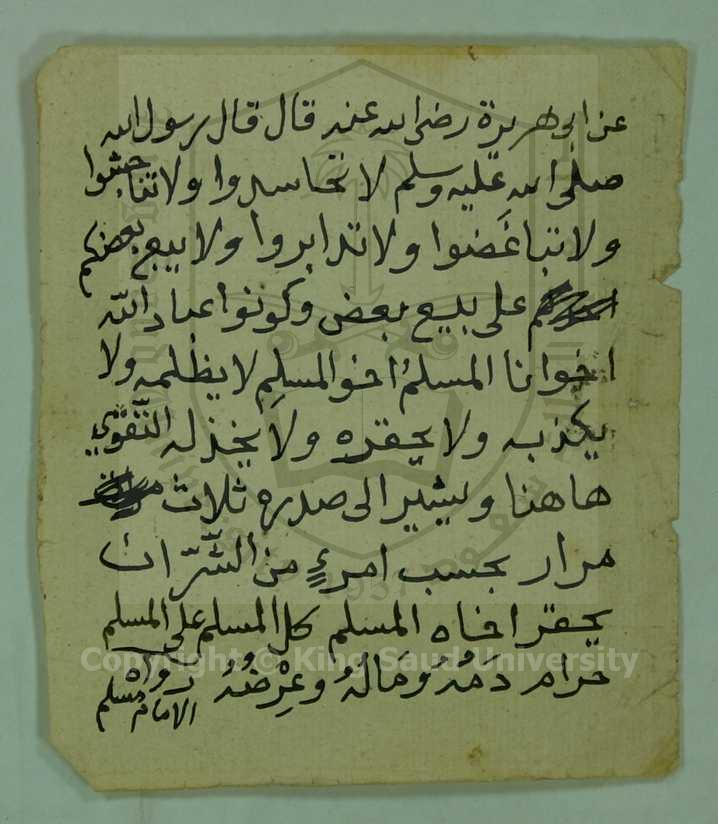 عن ابى هريرة رضى الله عنه قال قال رسول الله
صلى الله عليه وسلم لا تحاسدوا ولا تناجشوا
ولا تباغضوا ولا تدابروا ولا يبيع بعضكم
على بيع بعض وكونوا عباد الله
اخوانا المسلمُ اخو المسلِم لا يظلمه ولا
يكذبه ولا يحقره ولا يخذله التَّقوى
هاهنا ويشير الى صدره ثلاث
مرار بحسب امرءٍ من الشَّرّ ان
يحقر اخاه المسلم كل المسلم على المسلم
حرام دَمُهُ وَمَالُهُ وعِرْضُهُ رَوَاهُ
الامام مسلم
Copyright © King Saud University
1957